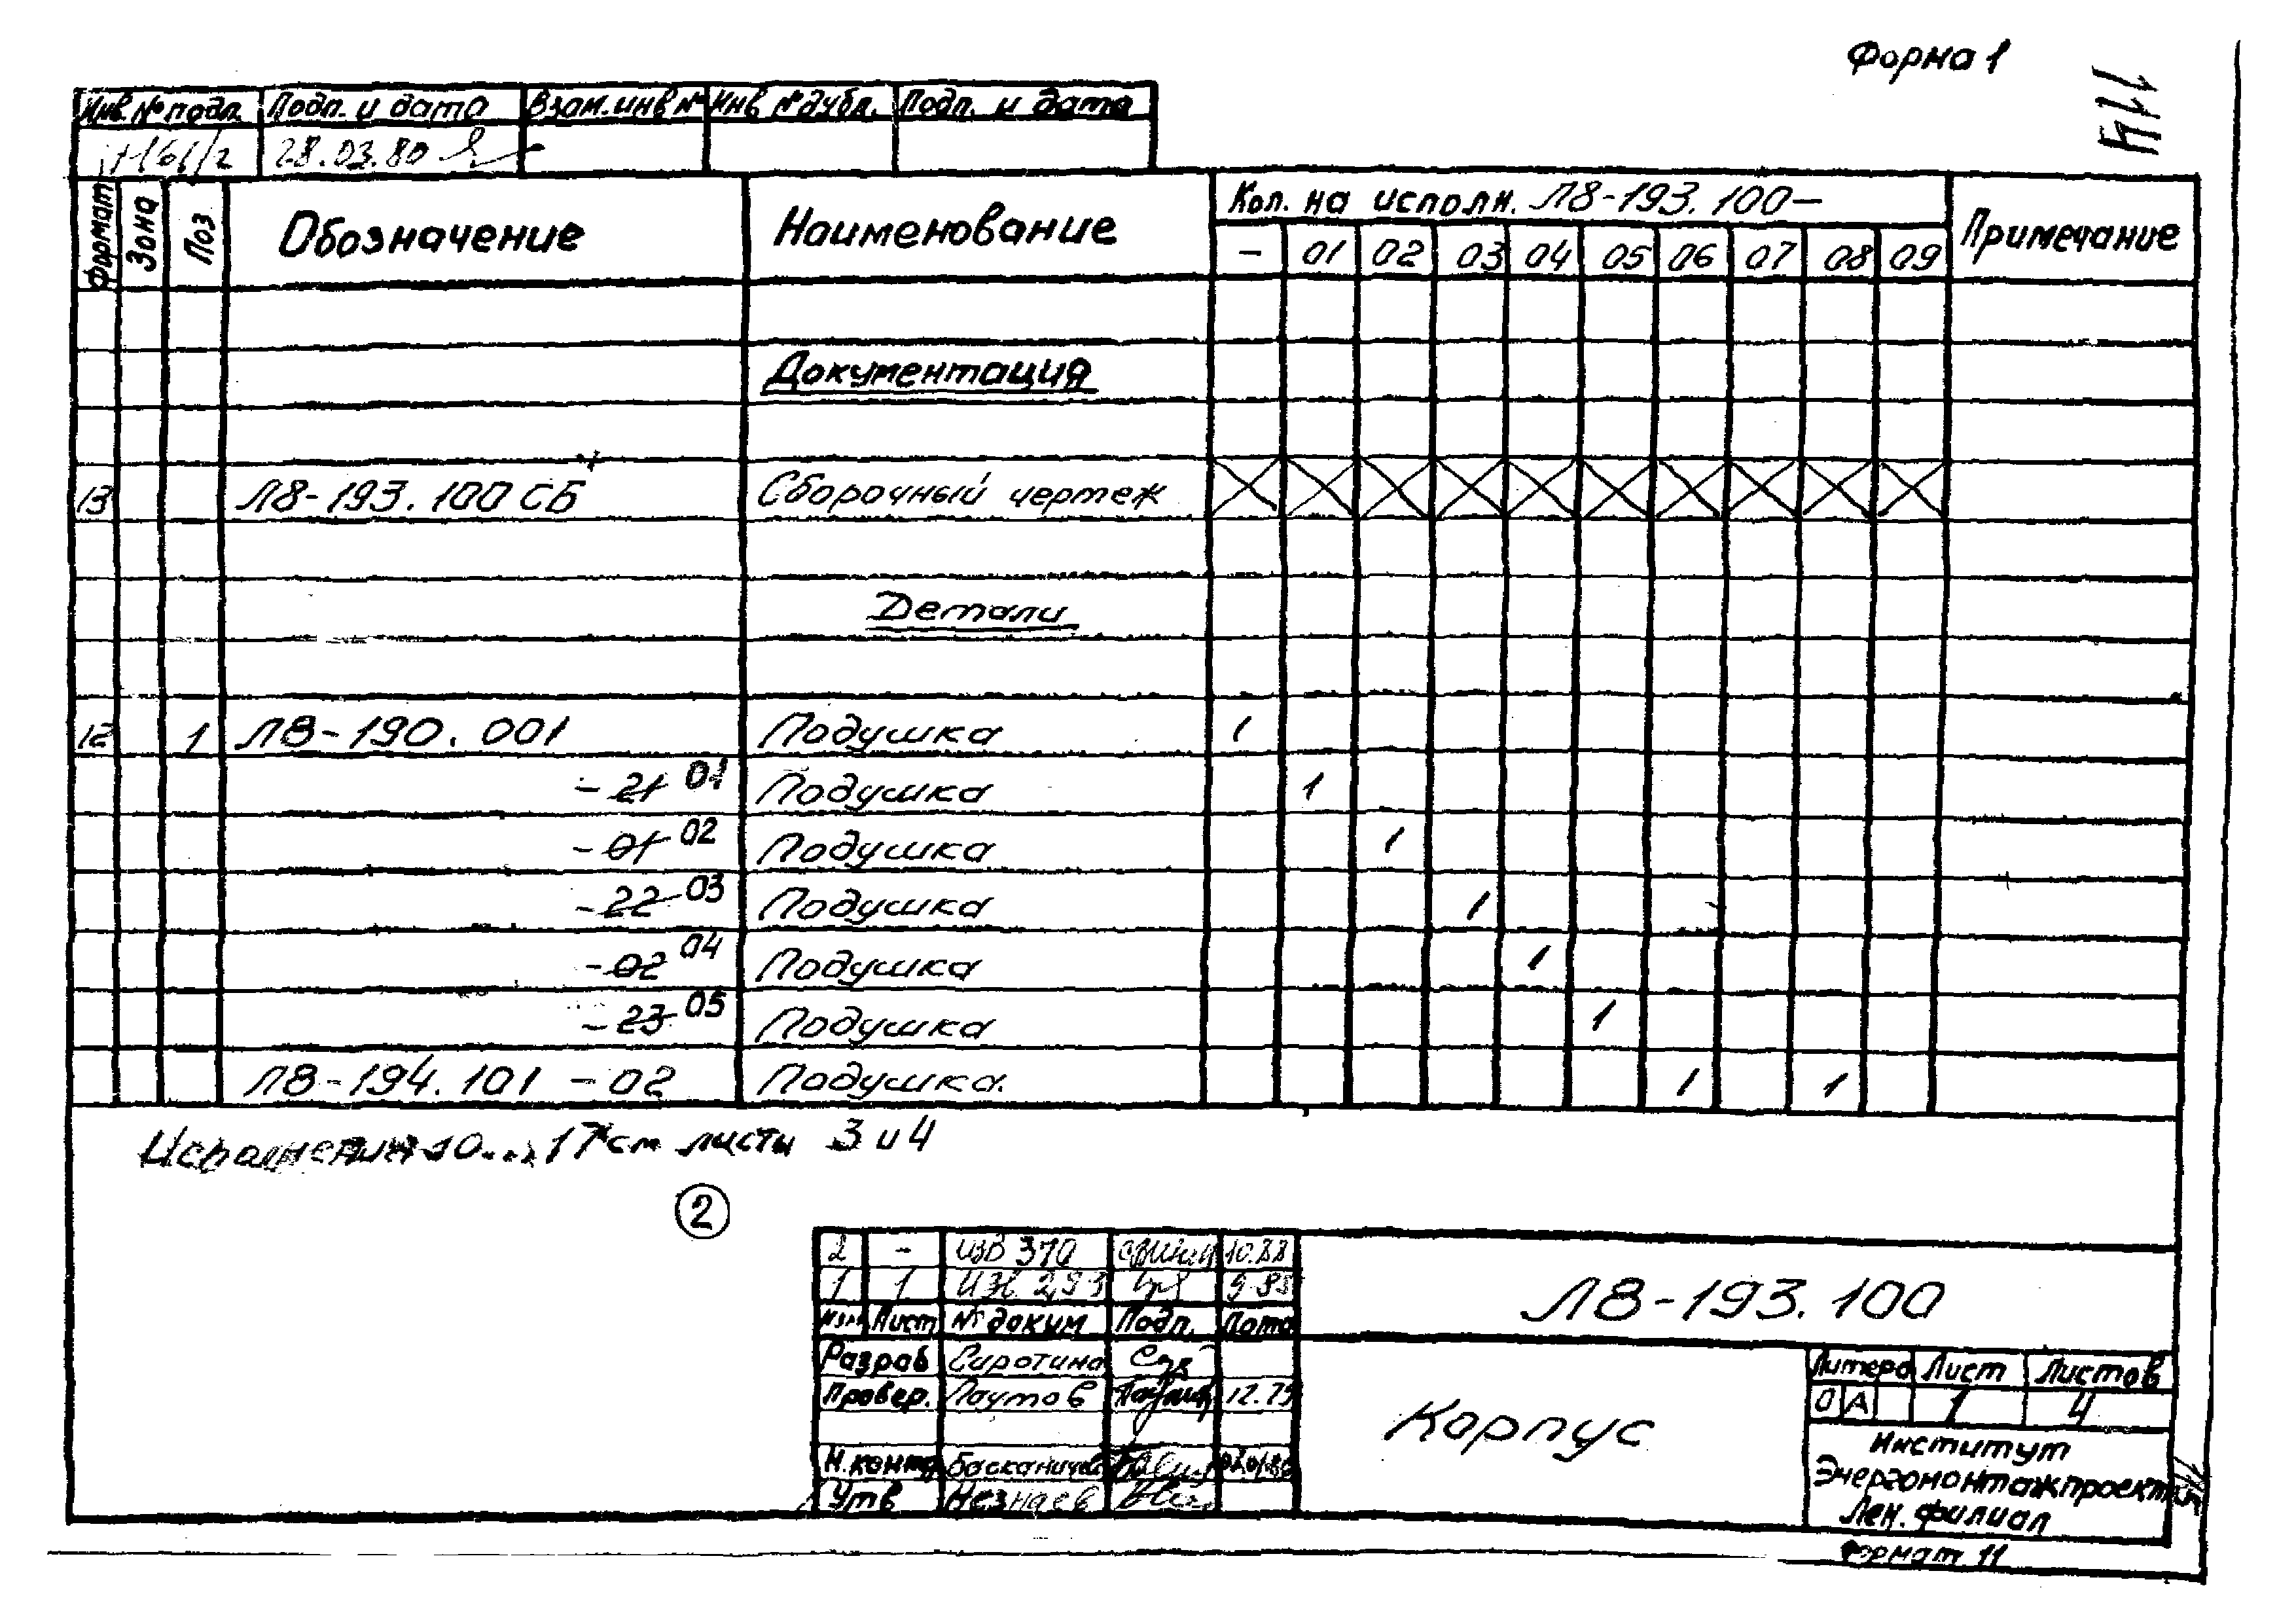 Форма 1
114
Инв. № подл. Подп. и дата Взам. инв № Инв № дубл. Подп. и дата
28.03.80
Формат Зона Поз Обозначение Наименование Кол. на исполн. Л8-193.100- Примечание
- 01 02 03 04 05 06 07 08 09
Документация
13 Л8-193.100 СБ Сборочный чертеж
Детали
12 1 Л8-190.001 Подушка 1
-21 01 Подушка 1
-01 02 Подушка 1
-22 03 Подушка 1
-02 04 Подушка 1
-23 05 Подушка 1
Л8-194.101 -02 Подушка. 1 1
Исполнения 10...17 см листы 3 и 4
2
2 - изв 370 10.88
1 1 изв. 293
Изм Лист № доким Подп. Дата
Л8-193.100
Разраб Сиротина
Провер. Паутов 12.79
Корпус
Литера Лист Листов
О А 1 4
Н. контр
Утв Незнаев
Институт
Энергомонтажпроект
Лен. филиал
Формат 11